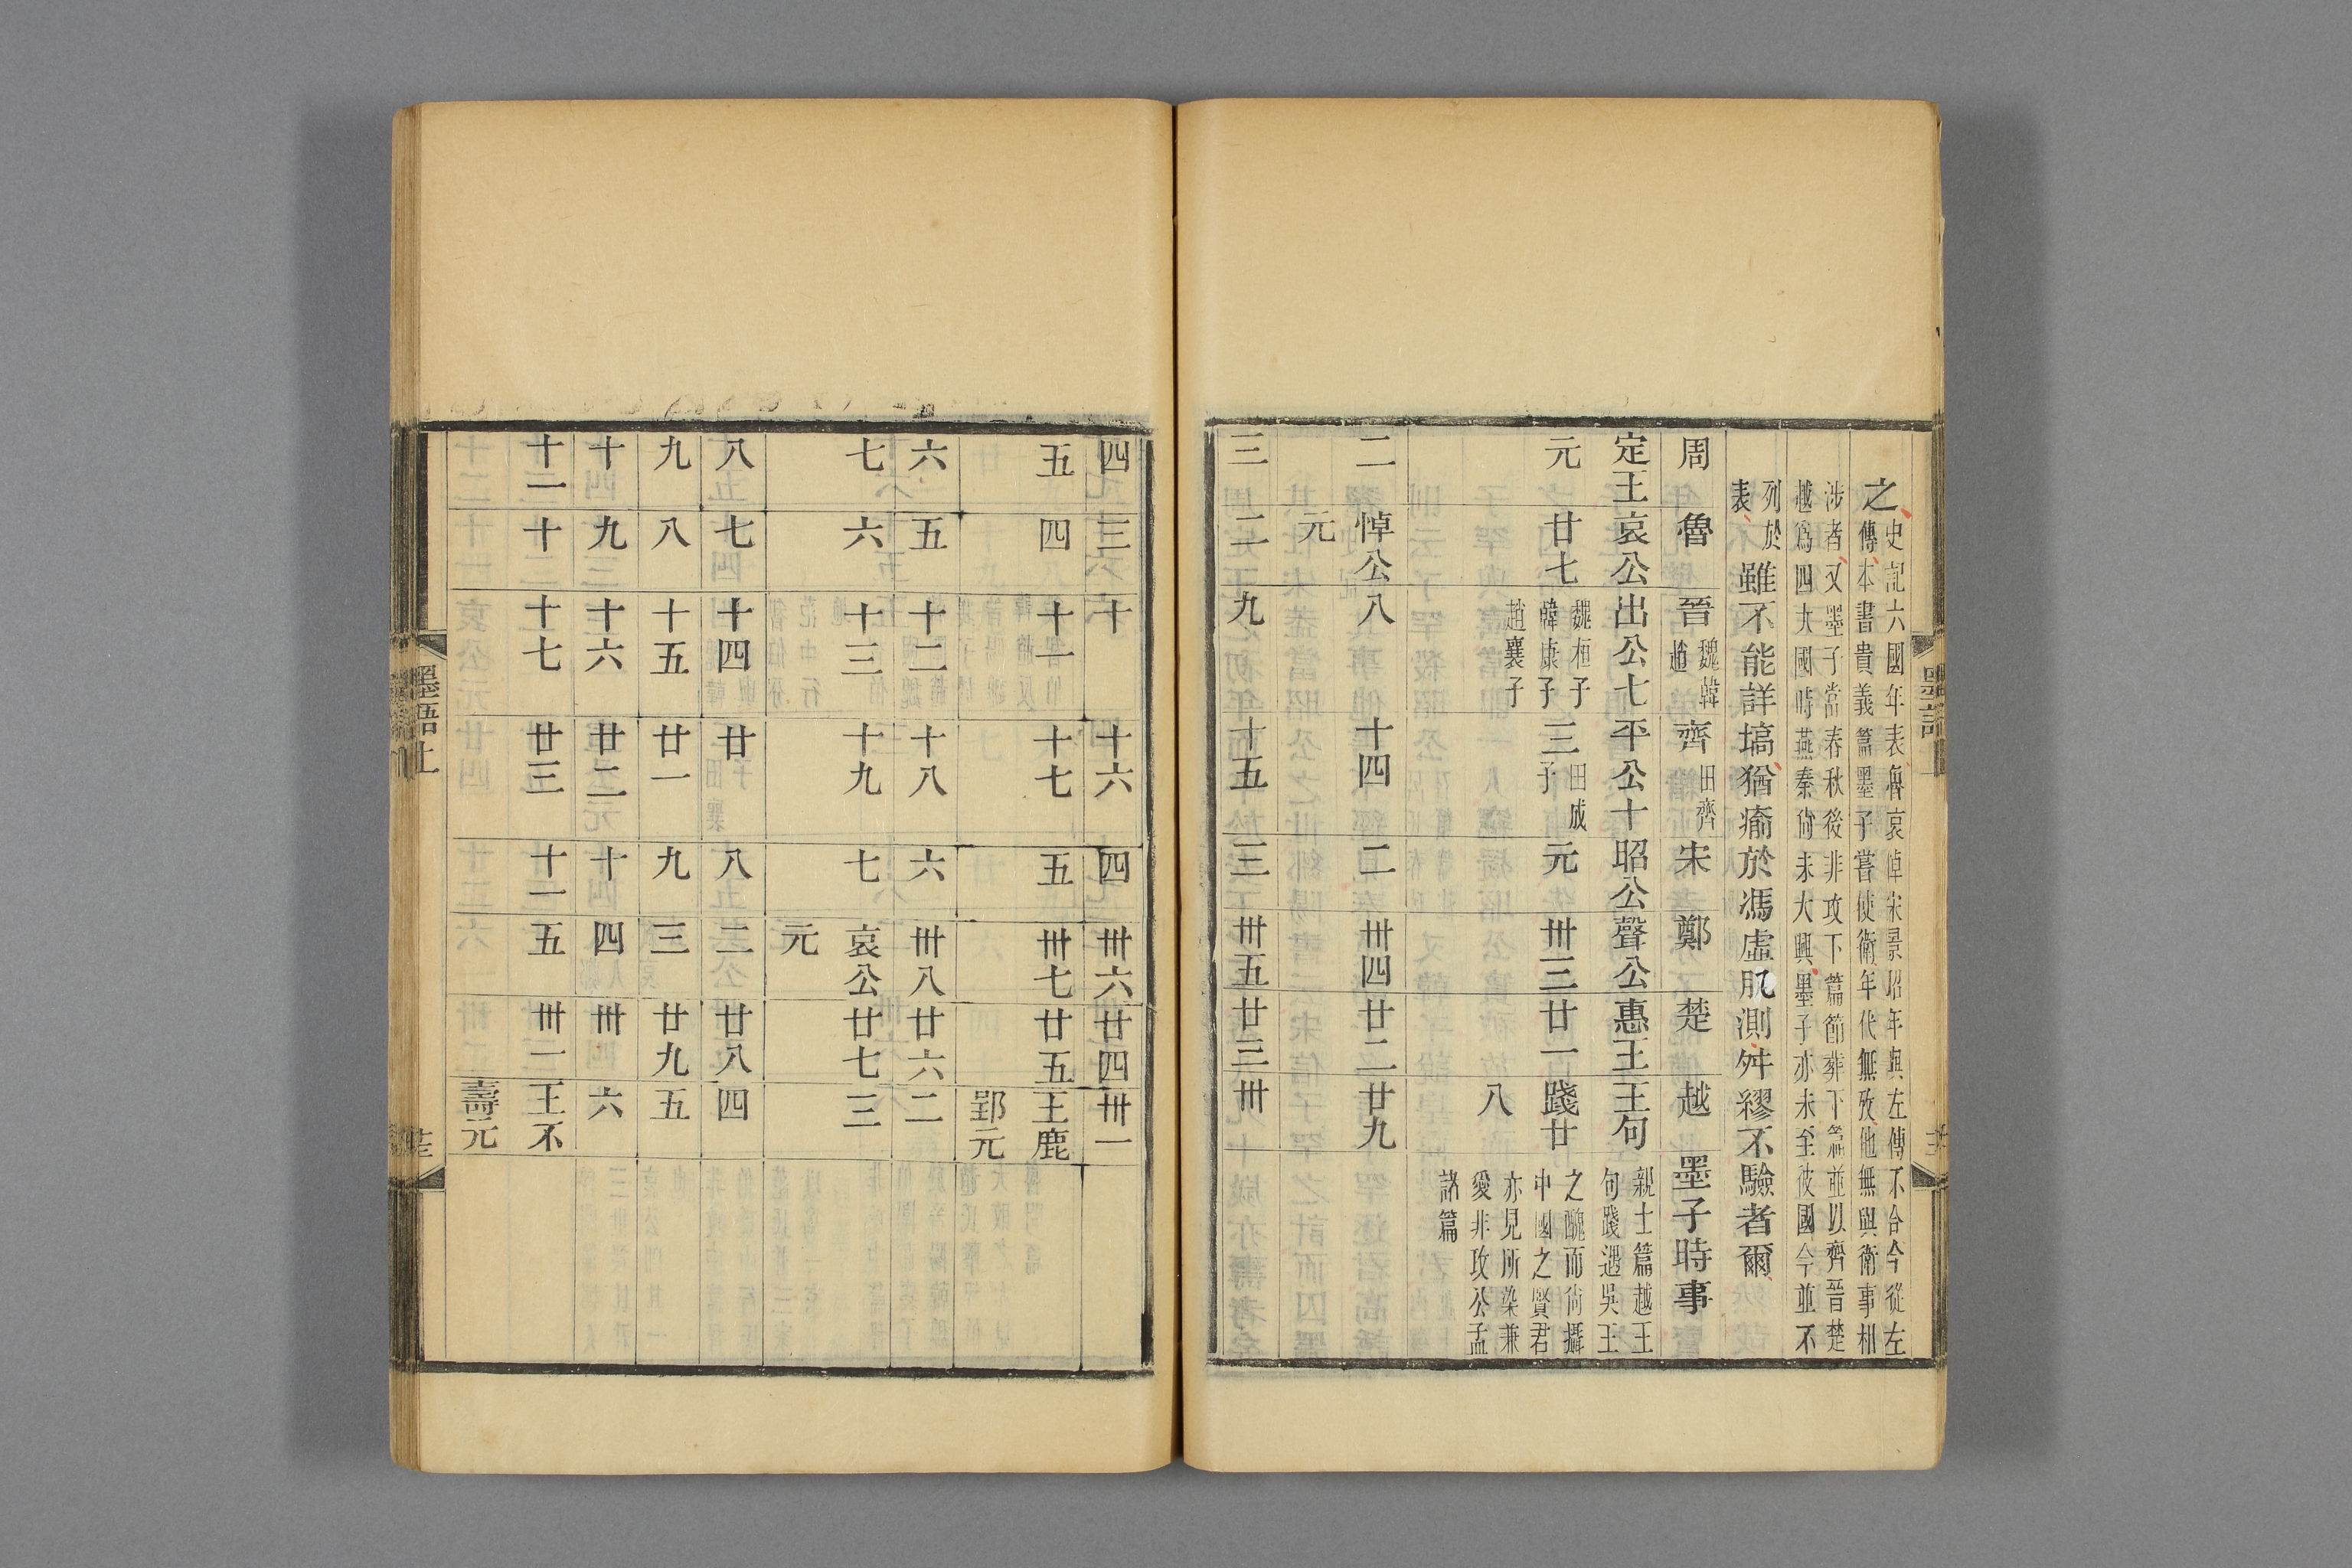 之
史記六國年表魯哀悼宋景昭年與左傳不合今從左
傳本書貴義篇墨子嘗使衛年代無攷他無與衛事相
涉者又墨子當春秋後非攻下篇節葬下篇並以齊晉楚
越爲四大國時燕秦尙未大興墨子亦未至彼國今並不
列於
表
雖不能詳塙猶瘉於馮虛肊測舛繆不驗者爾
周
魯
晉
魏韓
趙
齊
田齊
宋
鄭
楚
越
墨子時事
定王
元
哀公
廿七
出公七
魏桓子
韓康子
趙襄子
平公十
三
田成
子
昭公
元
聲公
卅三
惠王
廿一
王句
踐廿
八
親士篇越王
句踐遇吳王
之醜而尙攝
中國之賢君
亦見所染兼
愛非攻公孟
諸篇
二
悼公
元
八
十四
二
卅四
廿二
廿九
三
二
九
十五
三
卅五
廿三
卅
四
三
十
十六
四
卅六
廿四
卅一
五
四
十一
十七
五
卅七
廿五
王鹿
郢元
六
五
十二
十八
六
卅八
廿六
二
七
六
十三
十九
七
哀公
元
廿七
三
八
七
十四
廿
八
二
廿八
四
九
八
十五
廿一
九
三
廿九
五
十
九
十六
廿二
十
四
卅
六
十一
十
十七
廿三
十一
五
卅一
王不
壽元
墨語上